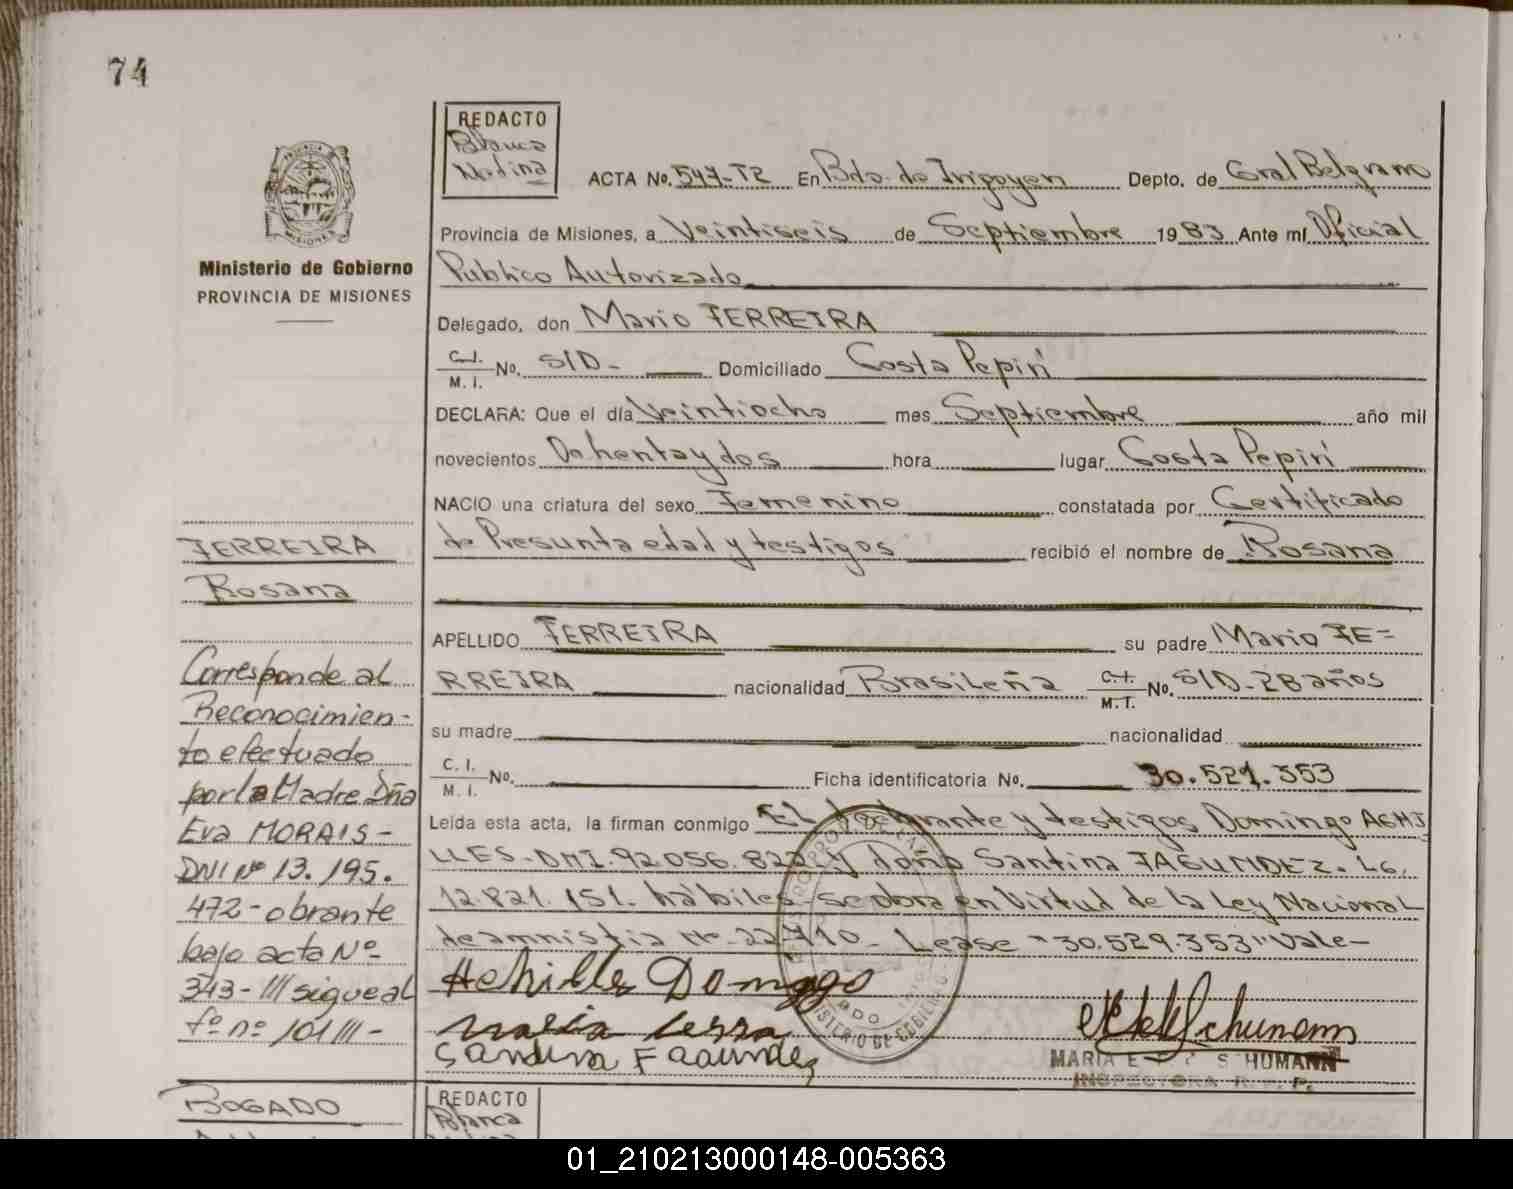 74
REDACTO
Blanca
Medina
ACTA No. 547-T2 En Bdo. de Irigoyen Depto. de Gral Belgrano
Provincia de Misiones, a Veintiseis de Septiembre 1983 Ante mí Oficial
Publico Autorizado
Delegado, don Mario FERREIRA
C.I. No. S/D-
M. I.
Domiciliado Costa Pepirí
DECLARA: Que el día Veintiocho mes Septiembre año mil
novecientos Ochentaydos hora lugar Costa Pepirí
NACIO una criatura del sexo Femenino constatada por Certificado
de Presunta edad y testigos recibió el nombre de Rosana
APELLIDO FERREIRA su padre Mario FE=
RREIRA nacionalidad Brasileña C.I. M.I. No. S/D-28 años
su madre nacionalidad
C. I. No.
M. I.
Ficha identificatoria No. 30.521.353
Leída esta acta, la firman conmigo El y testigos Domingo ACHI
LLES-DNI.92.056.822 y doña Santina FAGUNDEZ. LC.
12.821.151. habiles- se obra en Virtud de la Ley Nacional
de amnistia Nº-22.410- Lease "30.529.353" Vale-
Achilles Domingo
Santina Fagundez
MARIA E S HUMANN
INSPECTORA R. P.
Ministerio de Gobierno
PROVINCIA DE MISIONES
FERREIRA
Rosana
Corresponde al
Reconocimien-
to efectuado
por la Madre Dña
Eva MORAIS-
DNI Nº 13.195.
472-obrante
bajo acta Nº-
343-III sigue al
fº nº 101 III-
BOGADO
REDACTO
Blanca
01_210213000148-005363